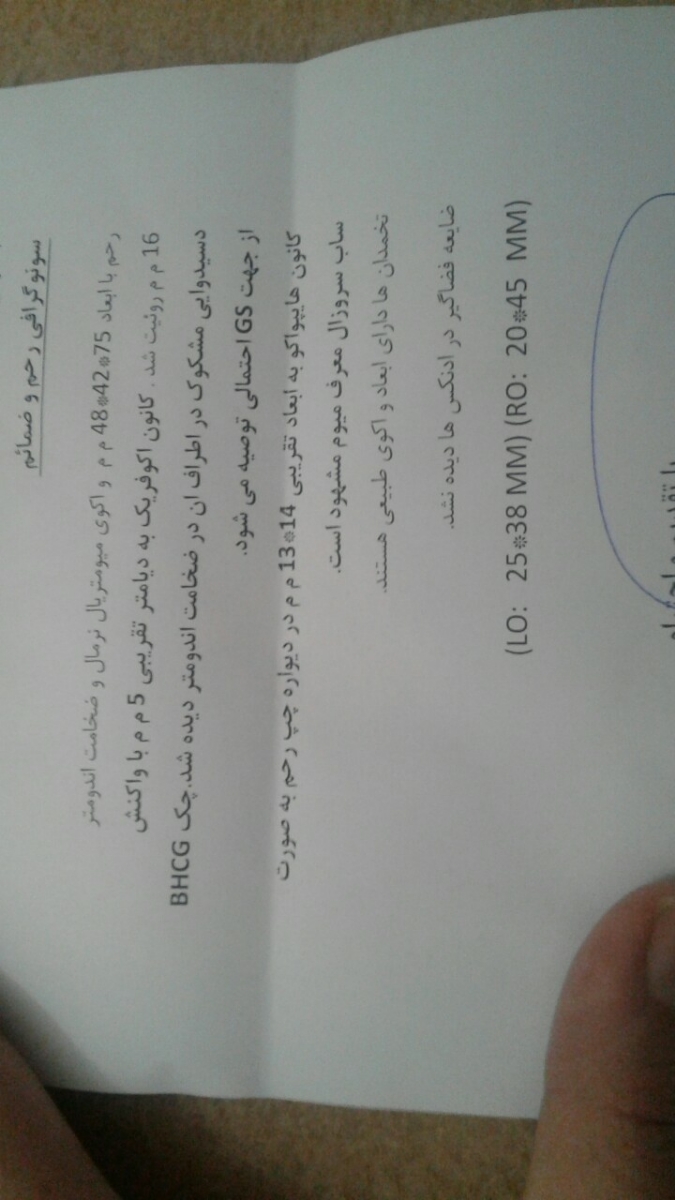 سونوگرافی رحم و ضمائم
رحم با ابعاد 75*42*48 م م و اکوی میومتریال نرمال و ضخامت اندومتر
16 م م روئیت شد . کانون اکوفریک به دیامتر تقریبی 5 م م با واکنش
دسیدوایی مشکوک در اطراف ان در ضخامت اندومتر دیده شد.چک BHCG
از جهت GS احتمالی توصیه می شود.
کانون هایپواکو به ابعاد تقریبی 14*13 م م در دیواره چپ رحم به صورت
ساب سروزال معرف میوم مشهود است.
تخمدان ها دارای ابعاد و اکوی طبیعی هستند.
ضایعه فضاگیر در ادنکس ها دیده نشد.
(LO: 25*38 MM) (RO: 20*45 MM)